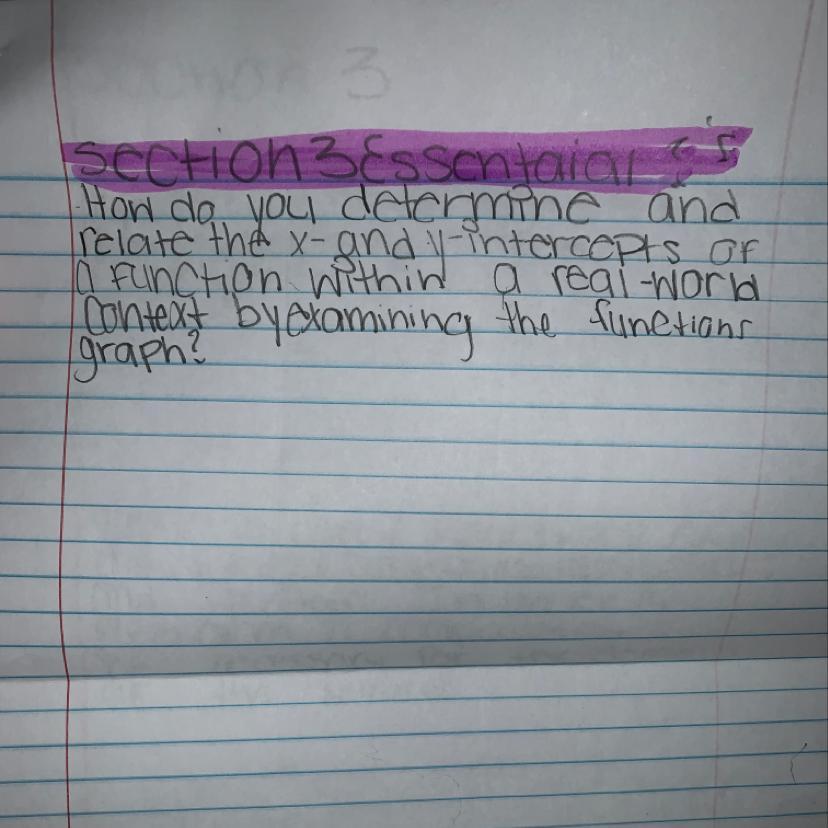 Section 3 Essentaial ?'s
How do you determine and
relate the x- and y-intercepts of
a function within a real-world
context by examining the functions
graph?